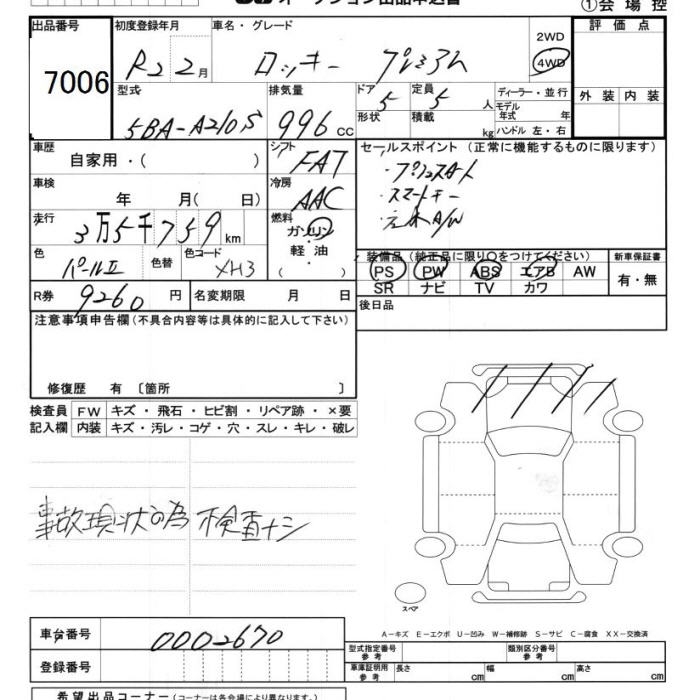 オークション出品申込書
①会場控
出品番号 初度登録年月 車名・グレード 2WD 評価点
7006 R2 2月 ロッキー プレミアム 4WD
型式 排気量 ドア 定員 ディーラー・並行 外装 内装
5BA-A210S 996 CC 5 5 人 モデル年式 年
形状 積載 kg ハンドル 左・右
車歴 シフト セールスポイント (正常に機能するものに限ります)
自家用・( ) FAT ・プッシュスタート
車検 冷房 ・スマートキー
年 月(日) AAC ・社外A/W
走行 3万5千759km 燃料 ガソリン・軽油・( )
色 色替 色コード 装備品 (純正品に限り○をつけてください) 新車保証書
パールⅡ XH3 PS PW ABS エアB AW 有・無
R券 9260 円 名変期限 月 日 SR ナビ TV カワ
注意事項申告欄(不具合内容等は具体的に記入して下さい) 後日品
修復歴 有 〔箇所 〕
検査員 FW キズ・飛石・ヒビ割・リペア跡・×要
記入欄 内装 キズ・汚レ・コゲ・穴・スレ・キレ・破レ
事故現状の為 検査ナシ
スペア
A-キズ E-エクボ U-凹み W-補修跡 S-サビ C-腐食 XX-交換済
車台番号 0002670 型式指定番号 参考 類別区分番号 参考
登録番号 車庫証明用 参考 長さ cm 幅 cm 高さ cm
希望出品コーナー (コーナーは各会場により異なります。)